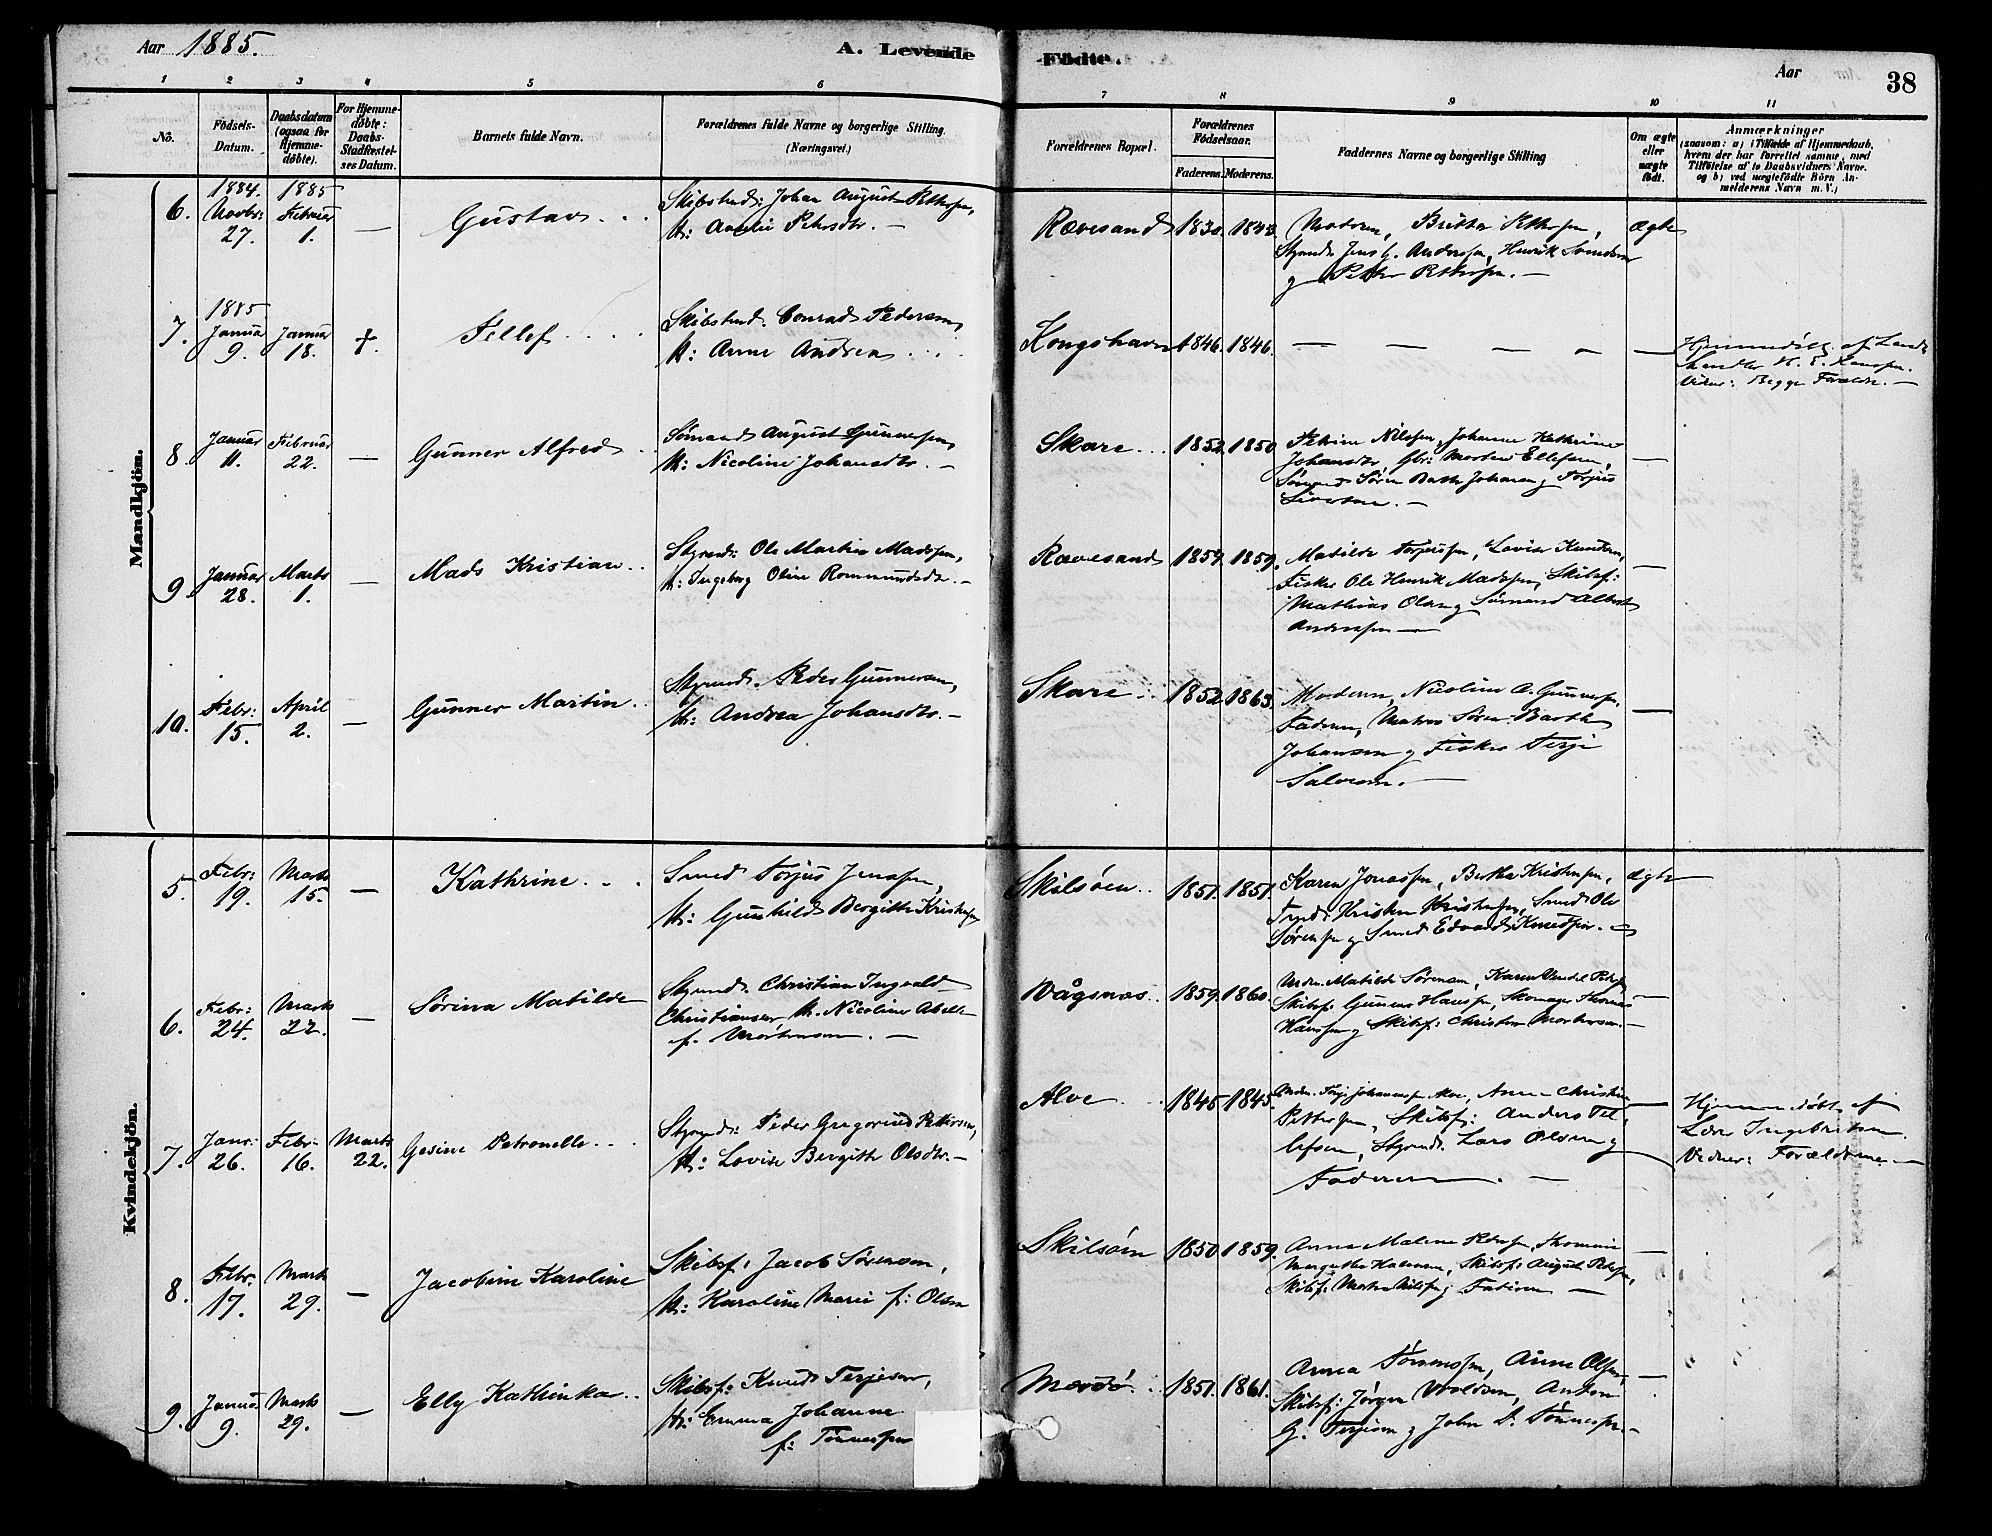 Aar 1885.
A. Levende Fødte.
Aar
38
1 2 3 4 5 6 7 8 9 10 11
No.
Fødsels-Datum.
Daabsdatum (ogsaa for Hjemmedøbte).
For Hjemmedøbte: Daabs-Stadfæstelses Datum.
Barnets fulde Navn.
Forældrenes fulde Navne og borgerlige Stilling. (Næringsvei.)
Forældrenes Bopæl.
Forældrenes Fødselsaar.
Faderens. Moderens.
Faddernes Navne og borgerlige Stilling
Om ægte eller uægte født.
Anmærkninger
(saasom: a) i Tilfælde af Hjemmedaab, hvem der har forrettet samme, med Tilføielse af to Daabsvidners Navne, og b) ved uægtefødte Börn Anmelderens Navn m. V.)
Mandkjön.
6. 1884. Novbr: 27. 1885 Februar 1. — Gustav . . Skibstmd: Johan August Pettersen, H: Amelie Pehrsdtr. — Rævesand 1830. Moderen, Britta Pettersen, ægte
Styrmd: Jens G. Anderssen, Henrik
og Peter Pettersen. —
7. 1885 Januar 9. Januar 18. †. Tellef . . . Skibstmd. Conrad Pedersen, H: Anne Andrea . . . Kongshavn 1846. 1846. — — — — — — Hjemmedøbt af Land-
handler H. E. Hanssen.
Vidner: Begge Forældre. —
8. Januar 11. Februar 22. — Gunner Alfred . . Sømand August Gunnersen, H: Nicoline Johansdtr. — Skare . . . 1852. 1850. Petrine Nilssen, Johanne Kathrine
Johansdtr, Gbr: Morten Ellefsen, —
Sømand Søren Barth Johansen og Torjus
Sivertsen. —
9. Januar 28. Marts 1. — Mads Kristian . . Styrmd: Ole Martin Madssen, H: Ingeborg Oline Rommundsdtr. — Rævesand 1859. 1859. Matilde Torjussen, Lovise Knudsen, —
Fisker Ole Henrik Madssen, Skibsf:
Mathias Olsen og Sømand Albert
Anderssen —
10. Febr: 15. April 2. — Gunner Martin . . Styrmd. Peder Gunnersen, H: Andrea Johansdtr. — Skare . . 1852. 1863. Moderen, Nicoline A. Gunnersen,
Faderen, Matros Søren Barth —
Johansen og Fisker Terje
Salvesen. —
Kvindekjön.
5. Febr: 19. Marts 15. — Kathrine . . . Smed Torjus Jenssen, H: Gunhild Bergitte Kristensen Skilsøen . . 1851. 1851. Karen Jonassen, Bertha Kristensen, ægte
Kristen Kristensen, Smed Ole
Sørensen og Smed Edvard Knudssen. —
6. Febr: 24. Marts 22. — Sørina Matilde Styrmd. Christian Ingvald
Christiansen H. Nicoline Abell
f. Mortensen. — Vågsnes . . 1859. 1860. Matilde Sørensen, Karen
Skibsf: Gunner Hanssen, Skomager Thomas —
Hanssen og Skibsf: Christen Mortensen. —
7. Janr: 26. Febr: 16. Marts 22. Gesine Petronelle . . . Styrmd: Peder Gregorius Pettersen, H: Lovise Bergitte Olsdtr. — Alve . . . 1845 1845. Johannessen Alve, Anne Christine —
Pettersen, Skibsf: Anders Tel-
lefsen, Styrmd. Lars Olsen og
Faderen. — Hjemmedøbt af
Lærer Ingebretsen.
Vidner: Forældrene. —
8. Febr: 17. Marts 29. — Jacobine Karoline Skibsf: Jacob Sørensen,
H: Karoline Marie f: Olsen Skilsøen 1850 1859. Anne Malene —
Margrethe Halvorsen, Skibsf: August
Skibsf: og Faderen —
9. Januar 9. Marts 29. — Elly Kathinka . . Skibsf: Knud Terjesen,
H: Emma Johanne
f: Tønnessen Mærdø . . 1851. 1861. Anna Tønnessen, Anne Olsen, —
Skibsf: Jørgen Woldsen, Anton
G. Terjesen og John D. Tønnessen. —